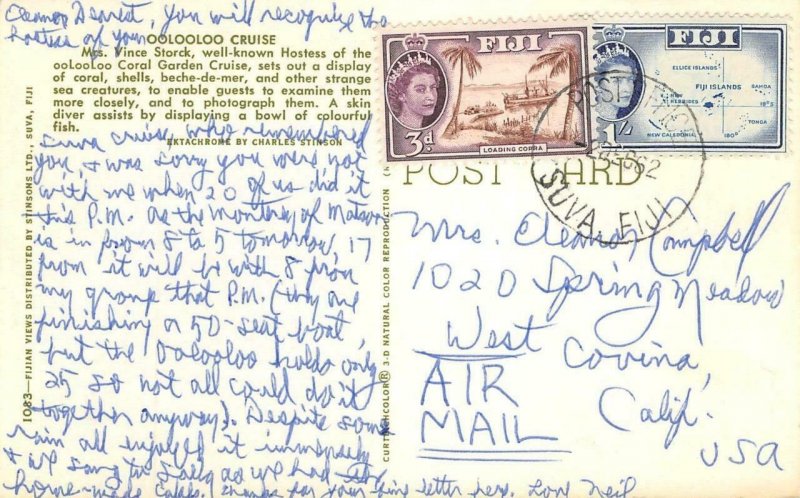 Eleanor Dearest, you will recognize the
hostess of your
OOLOOLOO CRUISE
Mrs. Vince Storck, well-known Hostess of the
ooLooLoo Coral Garden Cruise, sets out a display
of coral, shells, beche-de-mer, and other strange
sea creatures, to enable guests to examine them
more closely, and to photograph them. A skin
diver assists by displaying a bowl of colourful
fish.
EKTACHROME BY CHARLES STINSON
Suva cruise, who remembered
you, & was sorry you were not
with me when 20 of us did it
this P.M. As the Monterey of Matson
is in from 8 to 5 tomorrow, 17
from it will be with 8 from
my group that P.M. (they are
finishing a 50-seat boat,
but the Oolooloo holds only
25 so not all could do it
together anyway). Despite some
rain all enjoyed it immensely
& we sang as we had
home-made cake. Thanks for your fine letter here. Love Neil
1083—FIJIAN VIEWS DISTRIBUTED BY STINSONS LTD., SUVA, FIJI
CURTEICHCOLOR® 3-D NATURAL COLOR REPRODUCTION
POST CARD
FIJI
3d.
LOADING COPRA
FIJI
1/-
ELLICE ISLANDS
FIJI ISLANDS
SAMOA
NEW HEBRIDES
TONGA
NEW CALEDONIA
180°
POST
62
SUVA, FIJI
Mrs. Eleanor Campbell
1020 Spring Meadow
West Covina,
Calif.
USA
AIR
MAIL